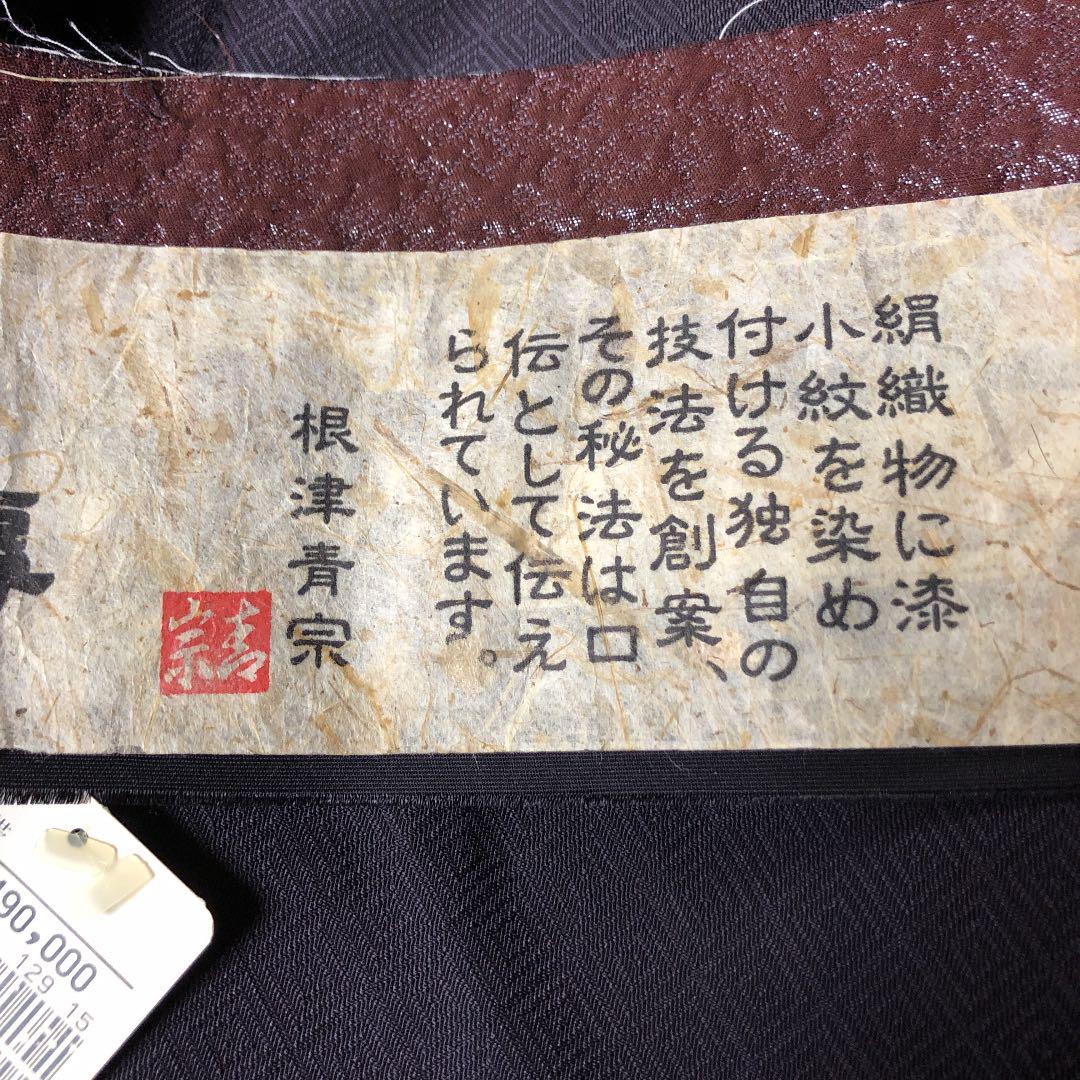 絹織物に漆
小紋を染め
付ける独自の
技法を創案、
その秘法は口
伝として伝え
られています。
根津青宗
青宗
490,000
129 15